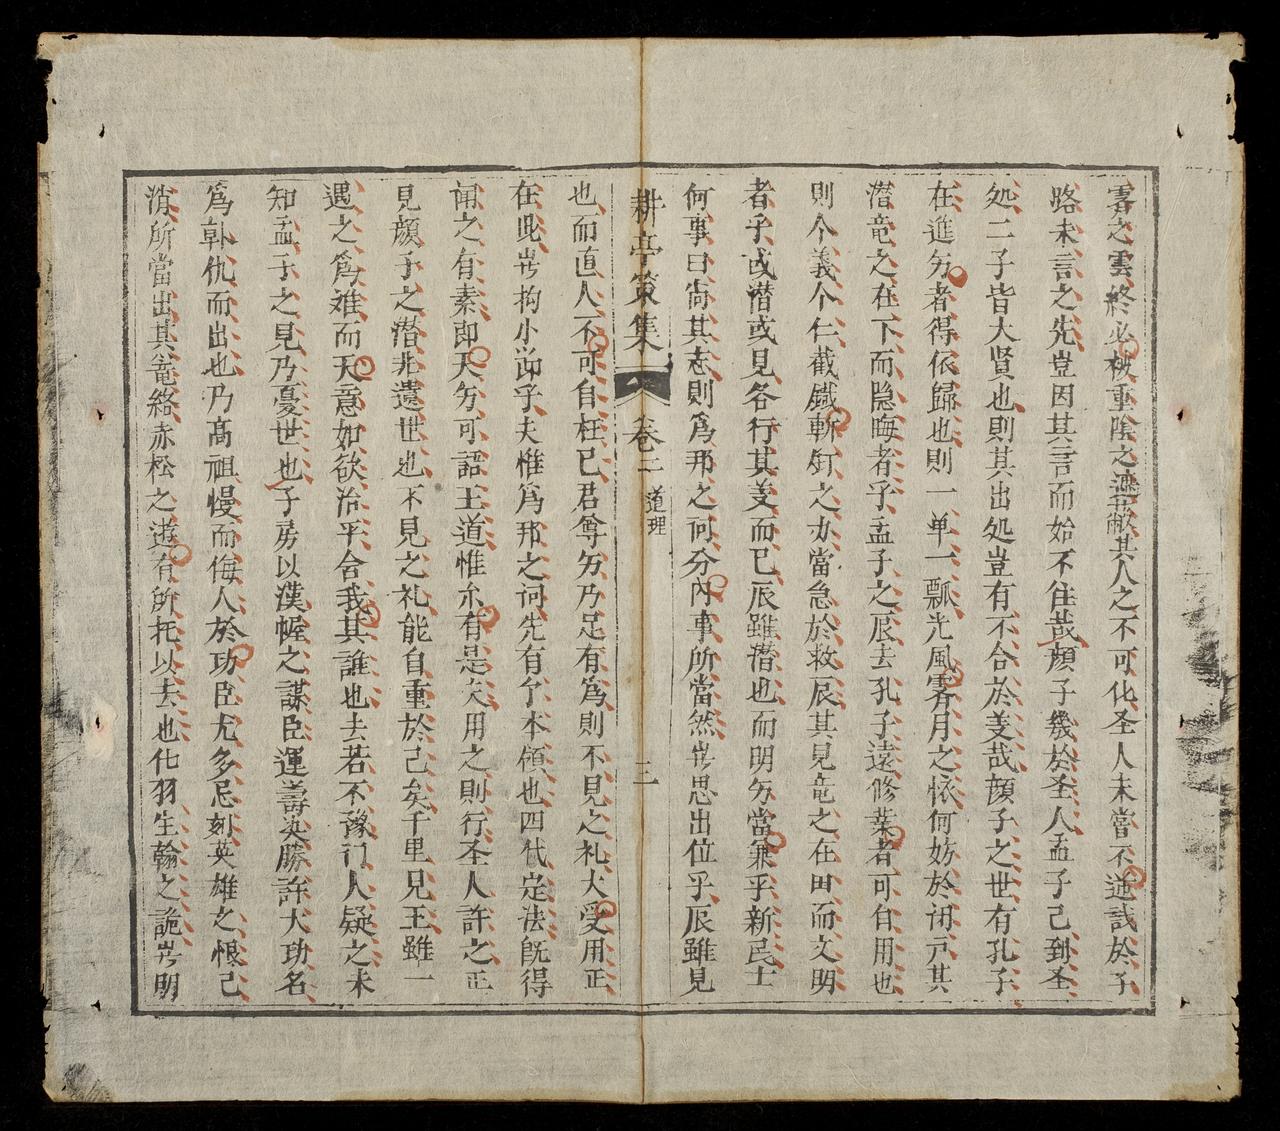 霽之雲終必被重陰之濃蔽其人之不可化圣人未嘗不逆誠於子
路未言之先豈因其言而始不往哉顔子幾於圣人孟子己到圣
処二子皆大賢也則其出処豈有不合於美哉顔子之世有孔子
在進労者得依歸也則一单一瓢光風霽月之懐何妨於闭戸其
潜竜之在下而隐晦者乎孟子之辰去孔子遠修業者可自用也
則个義个仁截鐡斬釘之办當急於救辰其見竜之在田而文明
者乎或潜或見各行其美而已辰雖潜也而明労當兼乎新民士
何事曰尚其志則為邦之问分內事所當然岂思出位乎辰雖見
耕亭策集 卷二 道理 三
也而直人不可自枉已君尊労乃足有為則不見之礼大受用正
在此岂拘小節乎夫惟為邦之问先有个本領也四代定法旣得
闻之有素即天労可語王道惟尔有是矣用之則行圣人許之正
見顔子之潜非遺世也不見之礼能自重於己矣千里見王雖一
遇之為难而天意如欲治平舍我其誰也去若不豫门人疑之未
知孟子之見乃憂世也子房以漢幄之謀臣運壽决勝許大功名
為韩仇而出也乃髙祖慢而侮人於功臣尤多忌刻英雄之恨己
消所當出其竜絡赤松之遊有所托以去也化羽生翰之詭岂明